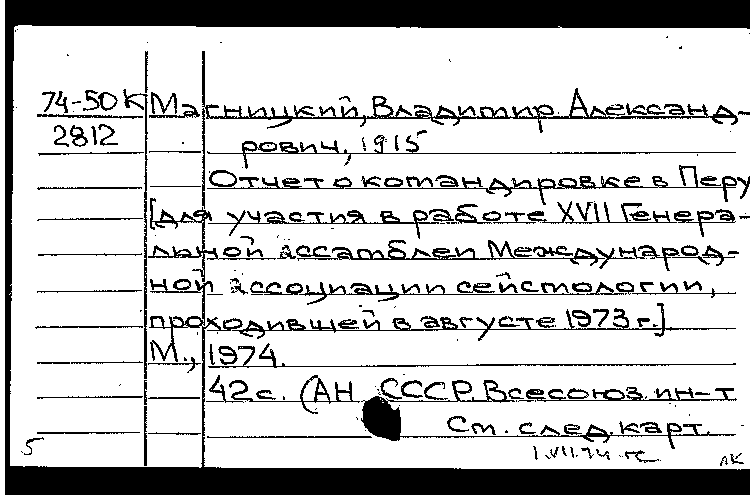 74-50К Магницкий, Владимир Александ-
2812 рович, 1915
Отчет о командировке в Перу
[для участия в работе XVII Генера-
льной ассамблеи Международ-
ной ассоциации сейсмологии,
проходившей в августе 1973 г.].
М., 1974.
42 с. (АН СССР. Всесоюз. ин-т
См. след. карт.
5 1.VII.74 АК